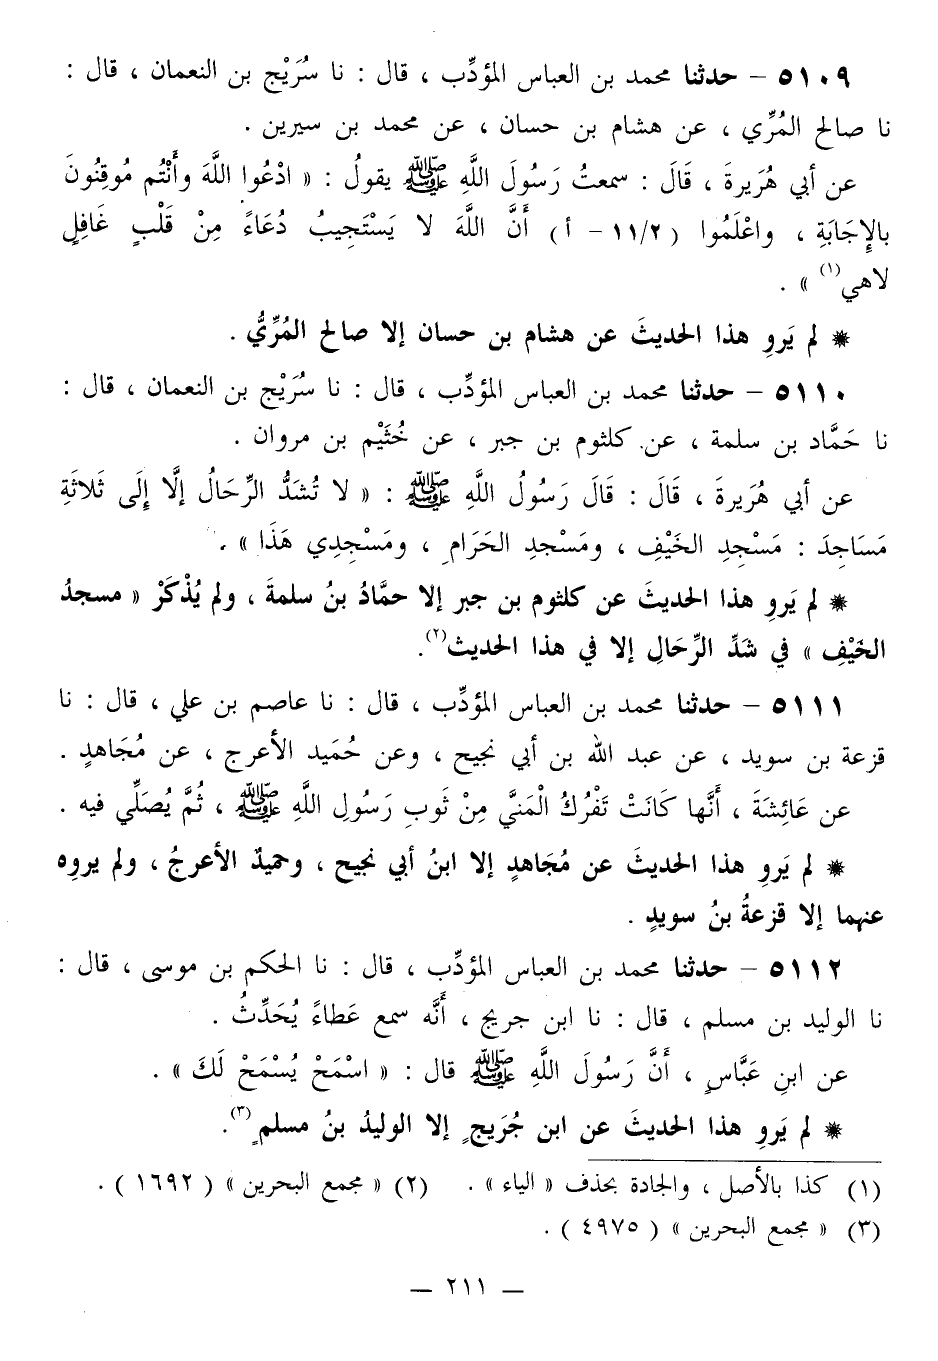 ٥١٠٩ – حدثنا محمد بن العباس المؤدِّب ، قال : نا سُرَيْج بن النعمان ، قال :
نا صالح المُرِّي ، عن هشام بن حسان ، عن محمد بن سيرين .
عن أبي هُرَيرةَ ، قَالَ : سمعتُ رَسُولَ اللَّهِ ﷺ يقولُ : « ادْعُوا اللَّهَ وأَنْتُم مُوقِنُونَ
بالإِجَابَةِ ، واعْلَمُوا ( ١١/٢ – أ ) أَنَّ اللَّهَ لا يَسْتَجِيبُ دُعَاءً مِنْ قَلْبٍ غَافِلٍ
لاهي(١) » .
* لم يَروِ هذا الحديثَ عن هشام بن حسان إلا صالح المُرِّيُّ .
٥١١٠ – حدثنا محمد بن العباس المؤدِّب ، قال : نا سُرَيْج بن النعمان ، قال :
نا حَمَّاد بن سلمة ، عن كلثوم بن جبر ، عن خُثَيْم بن مروان .
عن أبي هُرَيرةَ ، قَالَ : قَالَ رَسُولُ اللَّهِ ﷺ : « لا تُشَدُّ الرِّحَالُ إلَّا إِلَى ثَلاثَةِ
مَسَاجِدَ : مَسْجِدِ الخَيْفِ ، ومَسْجدِ الحَرَامِ ، ومَسْجِدِي هَذَا » .
* لم يَروِ هذا الحديثَ عن كلثوم بن جبر إلا حمَّادُ بنُ سلمةَ ، ولم يُذْكَرْ « مسجدُ
الخَيْفِ » في شَدِّ الرِّحَالِ إلا في هذا الحديث(٢).
٥١١١ – حدثنا محمد بن العباس المؤدِّب ، قال : نا عاصم بن علي ، قال : نا
قزعة بن سويد ، عن عبد الله بن أبي نجيح ، وعن حُمَيد الأعرج ، عن مُجَاهدٍ .
عن عَائِشَةَ ، أَنَّها كَانَتْ تَفْرُكُ الْمَنيَّ مِنْ ثَوبِ رَسُولِ اللَّهِ ﷺ ، ثُمَّ يُصَلِّي فيه .
* لم يَروِ هذا الحديثَ عن مُجَاهدٍ إلا ابنُ أبي نجيح ، وحميدٌ الأعرجُ ، ولم يروِه
عنهما إلا قزعةُ بنُ سويدٍ .
٥١١٢ – حدثنا محمد بن العباس المؤدِّب ، قال : نا الحكم بن موسى ، قال :
نا الوليد بن مسلم ، قال : نا ابن جريج ، أَنَّه سمع عَطاءً يُحَدِّثُ .
عن ابنِ عَبَّاسٍ ، أَنَّ رَسُولَ اللَّهِ ﷺ قال : « اسْمَحْ يُسْمَحْ لَكَ » .
* لم يَروِ هذا الحديثَ عن ابن جُرَيجٍ إلا الوليدُ بنُ مسلمٍ(٣).
(١) كذا بالأصل ، والجادة بحذف « الياء » . (٢) « مجمع البحرين » ( ١٦٩٢ ) .
(٣) « مجمع البحرين » ( ٤٩٧٥ ) .
— ٢١١ —